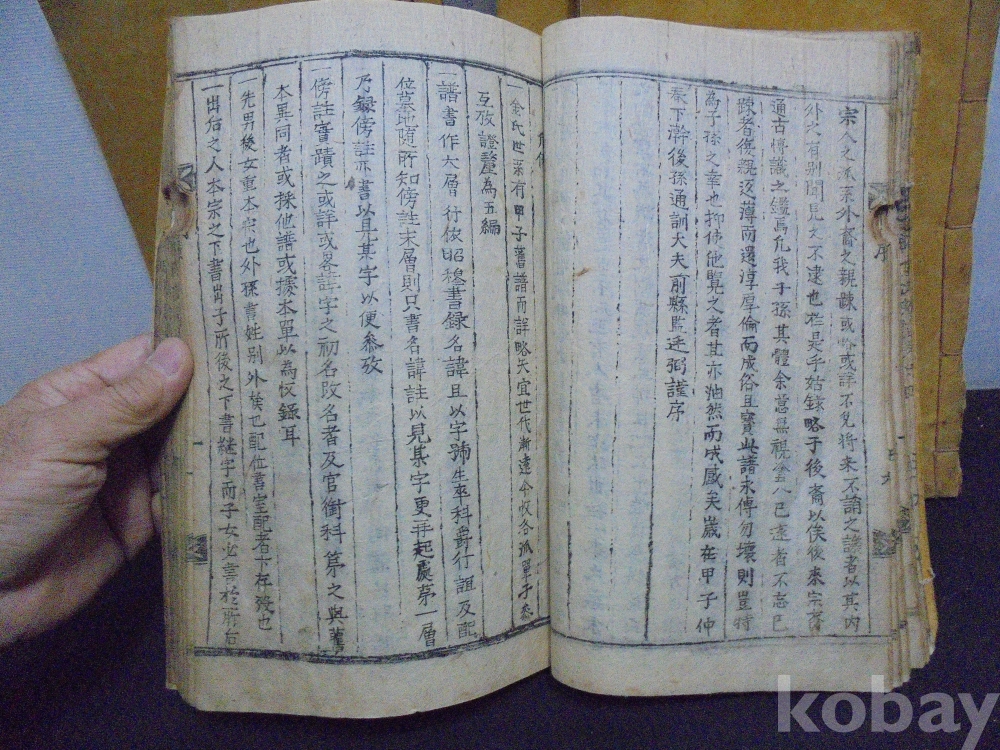 宗人之派系外裔之親踈或略或詳不免將來不誦之譏者以其內
外之有别聞見之不逮也於是乎姑錄略于後裔以俟後來宗裔
通古博識之鑑焉凡我子孫其體余當無視爲人已遠者不忘已
踈者復親返薄而還淳厚倫而成俗且寶此譜永傳勿壞則豈特
為子孫之幸也抑他覽之者其亦油然而成感矣歲在甲子仲
春下澣後孫通訓大夫前縣監廷弼謹序
凡例
一余氏世系有甲子舊譜而詳略失宜世代漸遠今收各孤單子悉
互攷證釐為五編
一譜書作六層行依昭穆書錄名諱且以字號生卒科爵行誼及配
位墓地隨所知傍註末層則只書名諱註以見某字更再起處第一層
乃錄傍註亦書以見某字以便叅攷
一傍註實蹟之或詳或畧諱字之初名改名者及官銜科第之與舊
本異同者或採他譜或據本單以為攷錄耳
一先男後女重本宗也外孫書姓别外族也配位書室配者下存沒也
一出后之人本宗之下書出子所後之下書継字而子女必書於所后
序
kobay